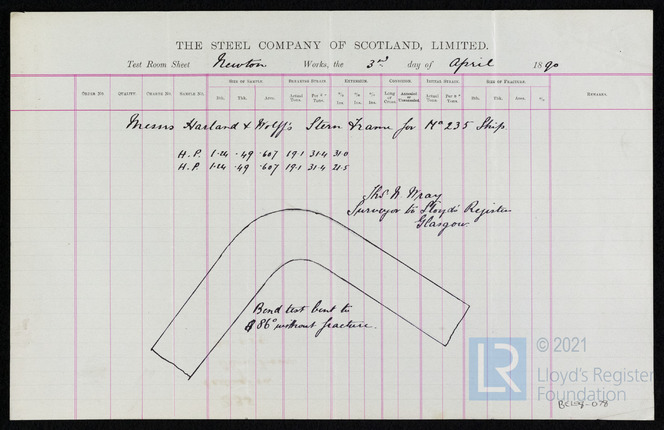 THE STEEL COMPANY OF SCOTLAND, LIMITED.
Test Room Sheet Newton Works, the 3rd day of April 1890
SIZE OF SAMPLE. BREAKING STRAIN. EXTENSION. INITIAL STRAIN. SIZE OF FRACTURE.
ORDER NO. QUALITY. CHARGE NO. SAMPLE NO. Bth. Thk. Area. Actual Tons. Per □" Tons. Actual Tons. Per □" Tons. Bth. Thk. Area. REMARKS.
Messrs Harland & Wolff's Stern Frame for No 235 Ship
H.P. 1.24 .49 .607 19.1 31.4 31.0
H.P. 1.24 .49 .607 19.1 31.4 21.5
Thos W. Wray
Surveyor to Lloyd's Register
Glasgow
Bend test bent to
86° without fracture.
LR © 2021
Lloyd's Register
Foundation